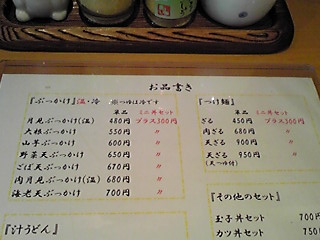 お品書き
『ぶっかけ』温・冷 ※つゆは冷です
単品 ミニ丼セット
月見ぶっかけ(温) 480円 プラス300円
大根ぶっかけ 550円 〃
山芋ぶっかけ 600円 〃
野菜天ぶっかけ 650円 〃
ごぼ天ぶっかけ 670円 〃
肉月見ぶっかけ(温) 680円 〃
海老天ぶっかけ 700円 〃
『汁うどん』
『つけ麺』
単品 ミニ丼セット
ざる 450円 プラス300円
肉ざる 680円 〃
天ざる 900円 〃
天ざる 950円 〃
(天つゆ付)
『その他のセット』
玉子丼セット 700円
カツ丼セット 750